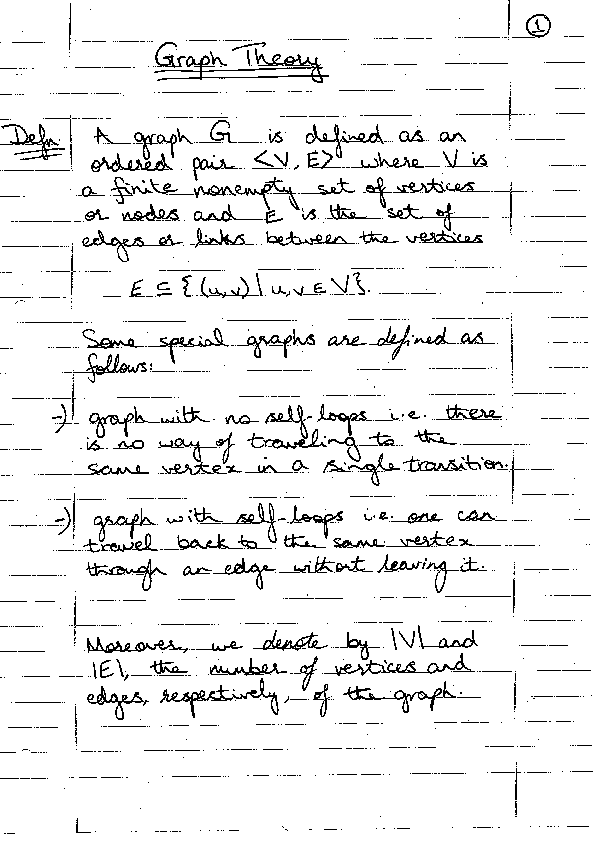 1
Graph Theory
Defn. A graph G is defined as an
ordered pair <V, E> where V is
a finite nonempty set of vertices
or nodes and E is the set of
edges or links between the vertices
E ⊆ {(u,v) | u,v ∈ V}.
Some special graphs are defined as
follows:
→) graph with no self-loops i.e. there
is no way of traveling to the
same vertex in a single transition.
→) graph with self-loops i.e. one can
travel back to the same vertex
through an edge without leaving it.
Moreover, we denote by |V| and
|E|, the number of vertices and
edges, respectively, of the graph.